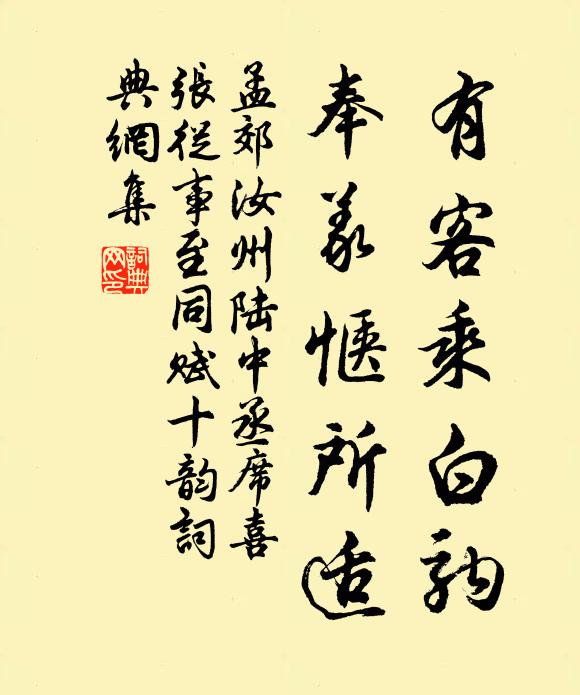 有客乘白駒
奉義愜所适
孟郊汝州陸中丞席喜
張從事至同賦十韵詞
典網集
詞典网印